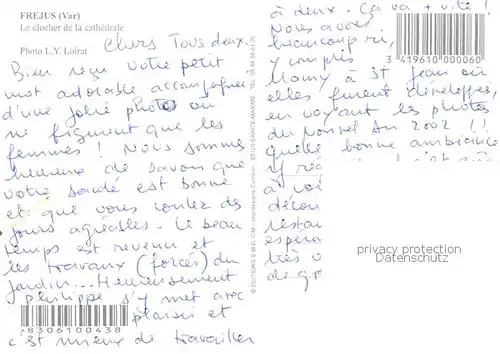 FREJUS (Var)
Le clocher de la cathédrale
Photo L.Y. Loirat
Chers Tous deux.
Bien reçu votre petit
mot adorable accompagné
d'une jolie photo où
ne figurent que les
femmes ! Nous sommes
heureux de savoir que
votre santé est bonne
et que vous coulez des
jours agréables. Le beau
temps est revenu et
les travaux (forcés) du
jardin... Heureusement
philippe s'y met avec
plaisir et
c'est mieux de travailler
7 83306 100438
à deux. Ça va + vite !
Nous avons
beaucoup ri,
y compris
Mamy à St Jean où
elles furent développées,
en voyant les photos
du nouvel An 2002 !!
quelle bonne ambiance
à vo
décou
restau
espéra
très v
de gr
3 419610 000060
privacy protection
Datenschutz